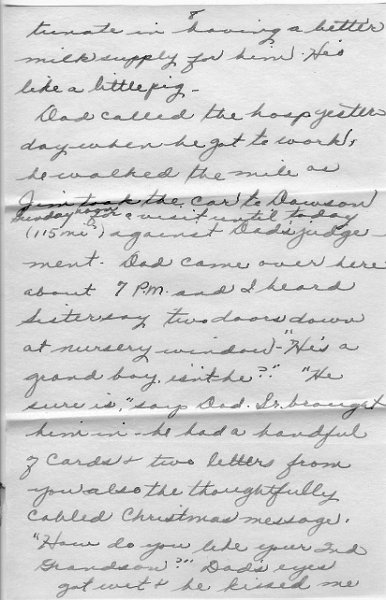 8
tunate in having a better
milk supply for him. He's
like a little pig -
Dad called the hosp yester
day when he got to work,
he walked the mile as
Jim took the car to Dawson
Sunday for a visit until today
(115 mi's) against Dad's judge-
ment. Dad came over here
about 7 P.M. and I heard
Sister say two doors down
at nursery window - "He's a
grand boy, isn't he?" "He
sure is," says Dad. Sr. brought
him in - he had a handful
of cards & two letters from
you also the thoughtfully
cabled Christmas message.
"How do you like your 2nd
Grandson?" Dad's eyes
got wet & he kissed me